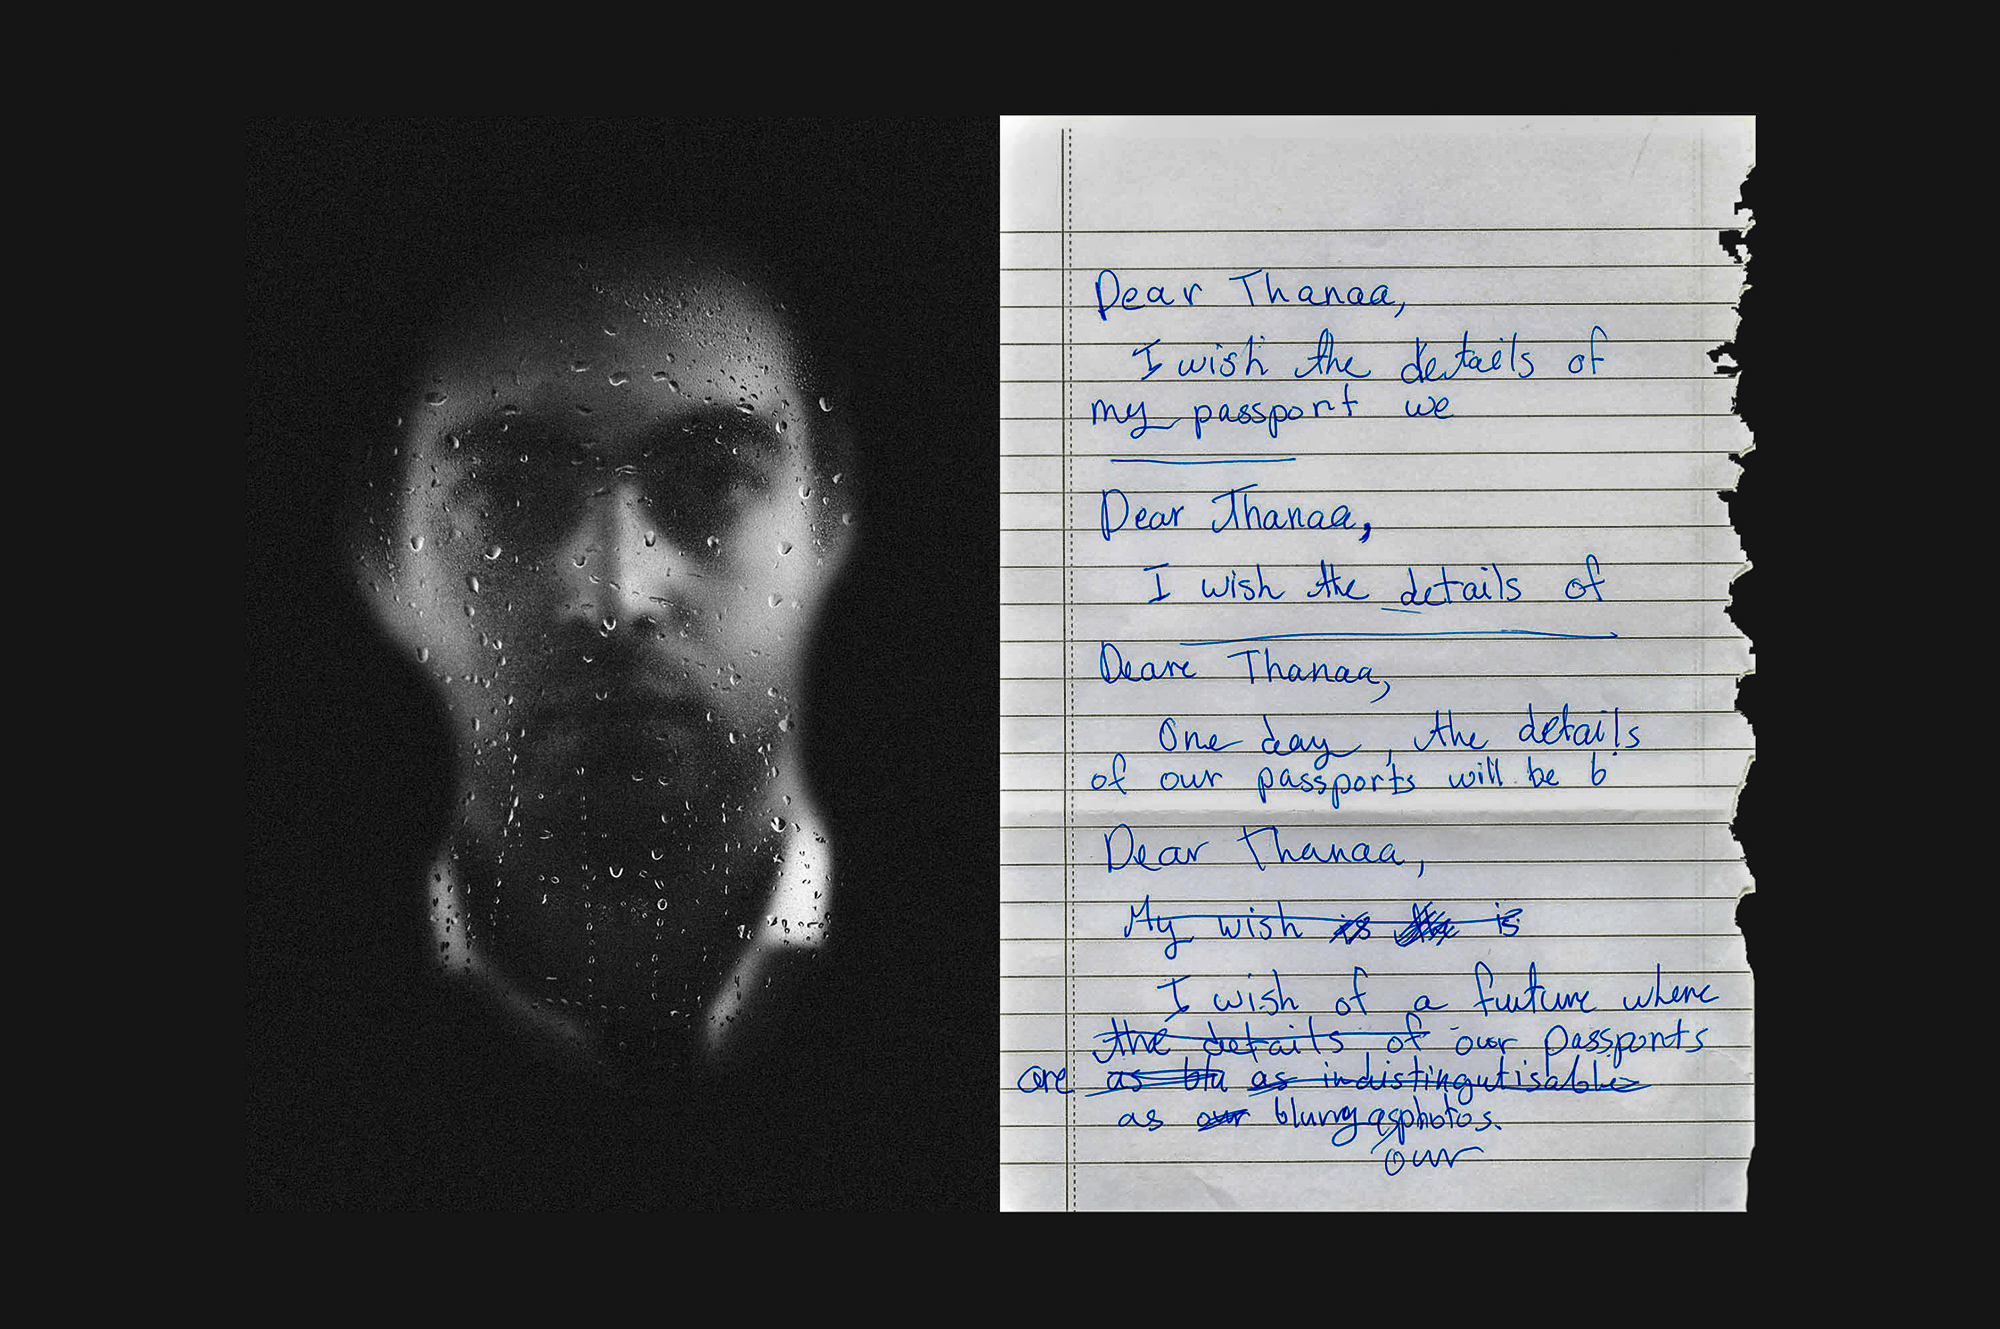 Dear Thanaa,
I wish the details of
my passport we
Dear Thanaa,
I wish the details of
Deare Thanaa,
One day, the details
of our passports will be b
Dear Thanaa,
My wish is is
I wish of a furture where
the details of our passports
are as blu as indistingutisable
as our blurry as photos.
our